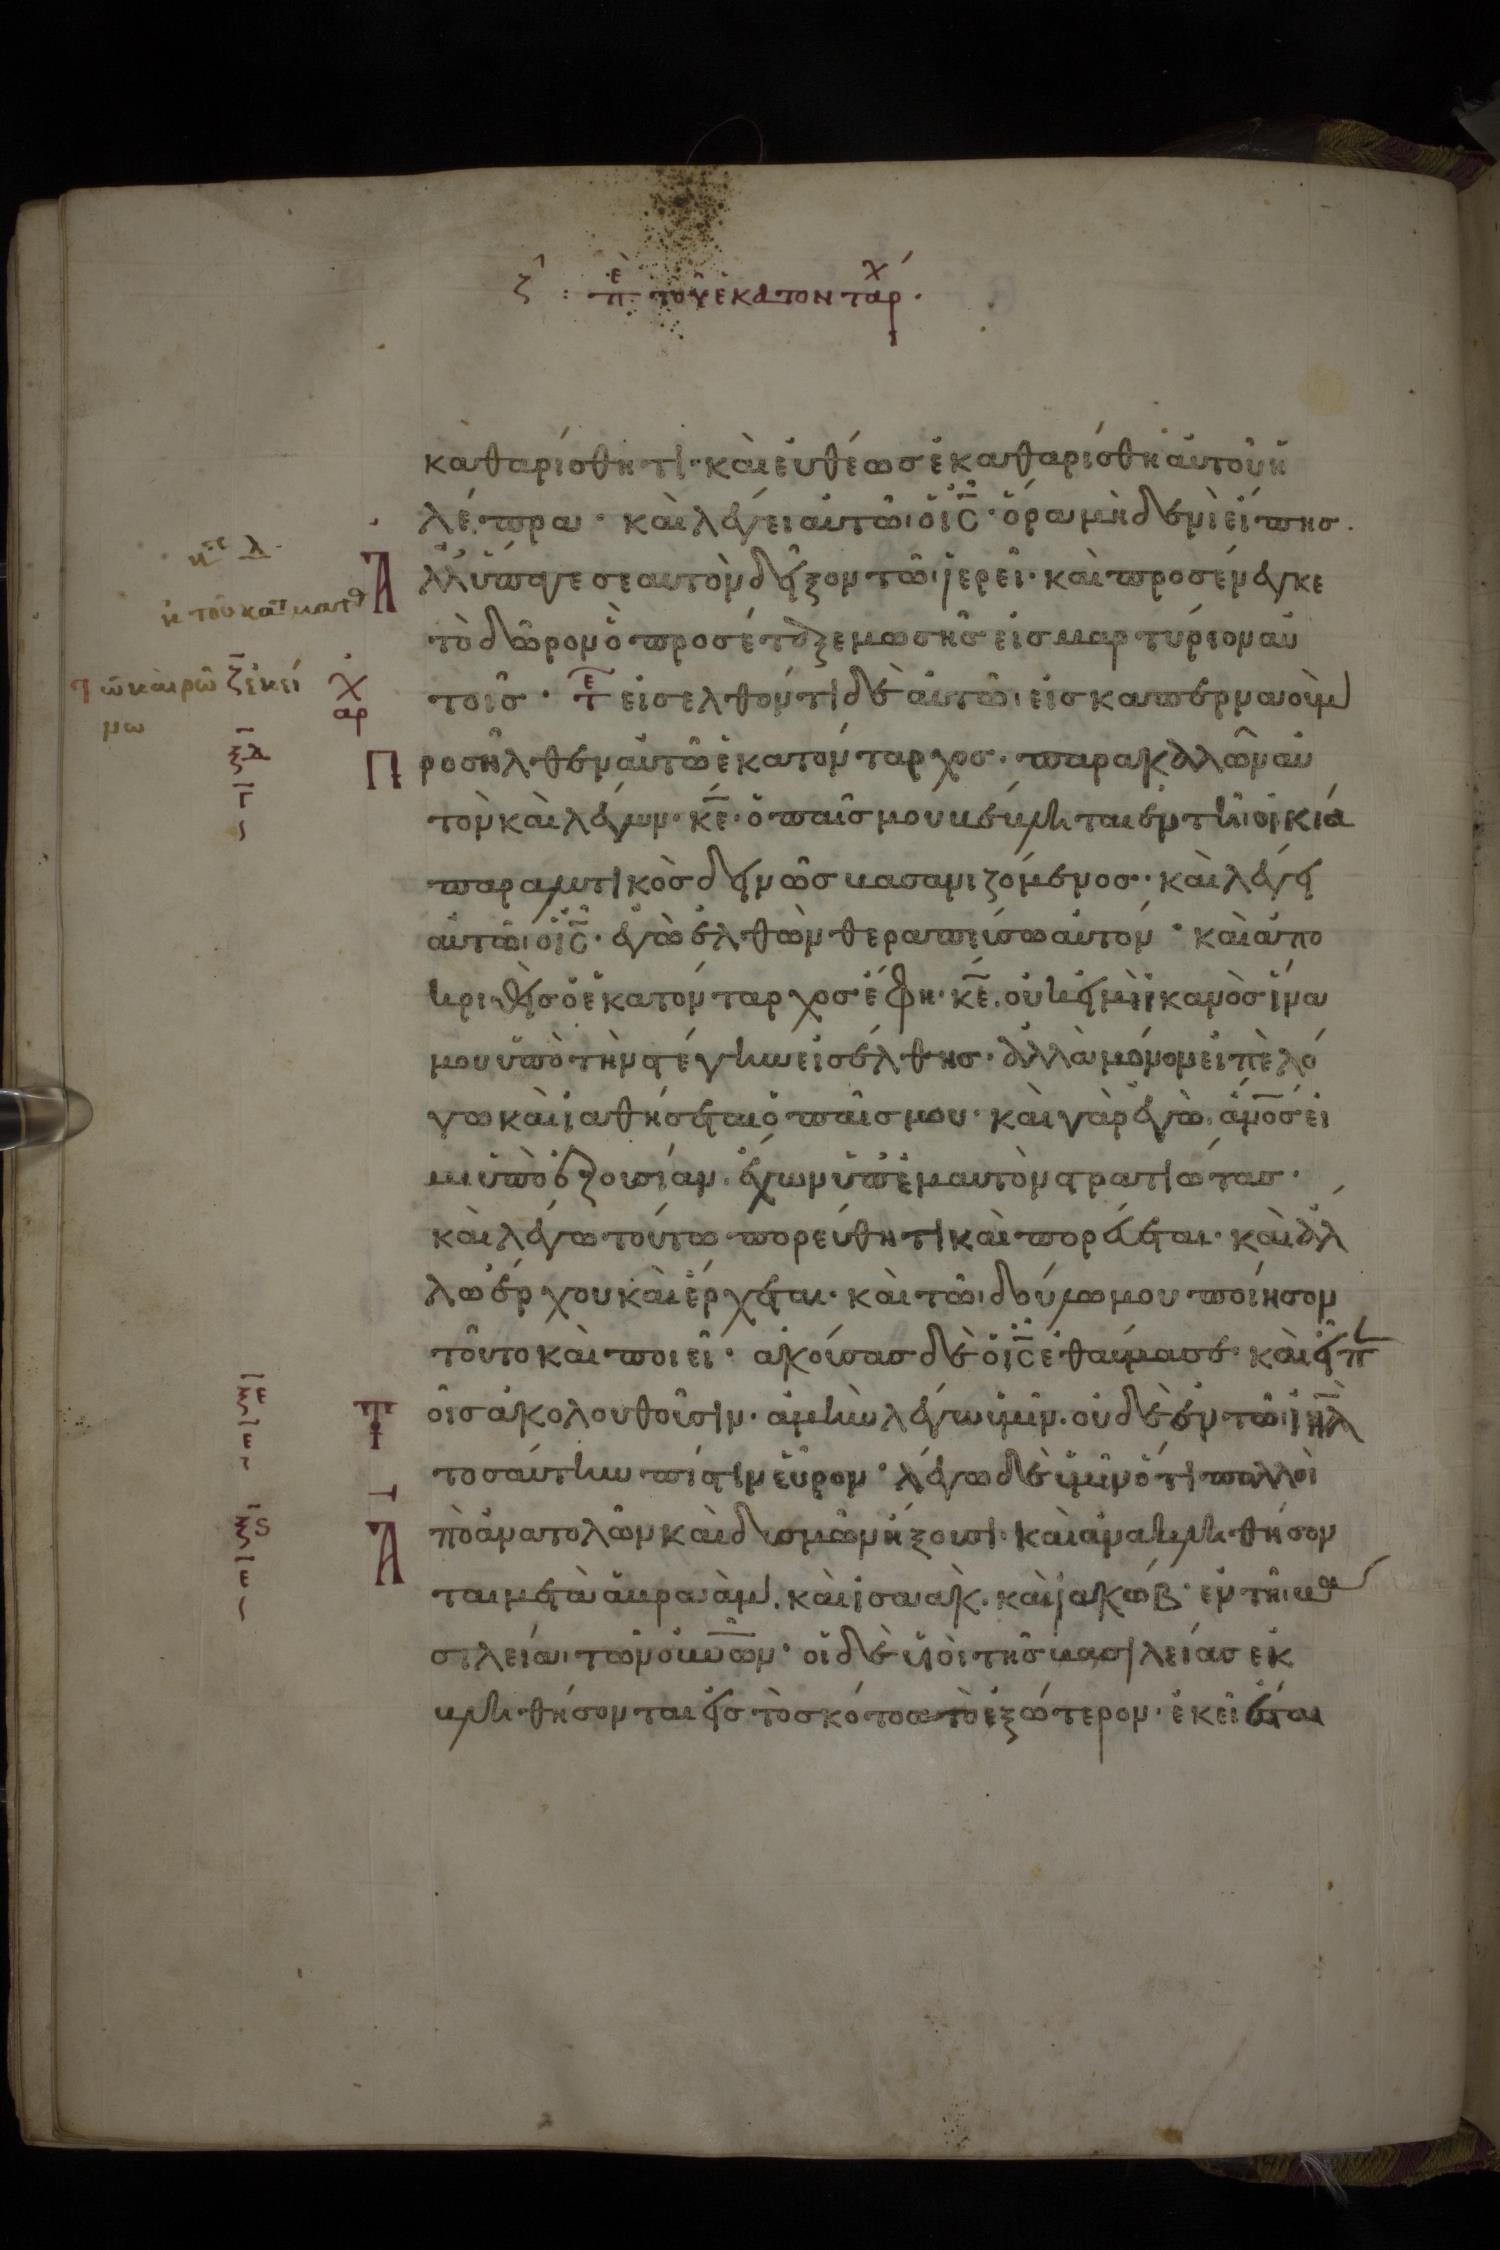 ζ : περὶ τοῦ ἑκατοντάρχ.
καθαρίσθητι· καὶ εὐθέως ἐκαθαρίσθη αὐτοῦ ἡ
λέπρα· καὶ λέγει αὐτῶ ὁ ις̅· ὅρα μηδενὶ εἴπης.
ἀλλ' ὕπαγε σεαυτὸν δεῖξον τῶ ἱερεῖ· καὶ προσένεγκε
τὸ δῶρον ὃ προσέταξε μωσῆς εἰς μαρτύριον αὐ
τοῖς· τε εἰσελθόντι δὲ αὐτῶ εἰς καπερναοὺμ
προσῆλθεν αὐτῶ ἑκατόνταρχος· παρακαλῶν αὐ
τὸν καὶ λέγων· κε̅· ὁ παῖς μου βέβληται ἐν τῆ οἰκία
παραλυτικὸς δεινῶς βασανιζόμενος· καὶ λέγει
αὐτῶ ὁ ις̅· ἐγὼ ἐλθὼν θεραπεύσω αὐτόν· καὶ ἀπο
κριθεὶς ὁ ἑκατόνταρχος ἔφη· κε̅. οὐκ εἰμὶ ἱκανὸς ἵνα
μου ὑπὸ τὴν στέγην εἰσέλθης· ἀλλὰ μόνον εἰπὲ λό
γω καὶ ἰαθήσεται ὁ παῖς μου· καὶ γὰρ ἐγὼ ανος̅ εἰ
μι ὑπὸ ἐξουσίαν. ἔχων ὑπ' ἐμαυτὸν στρατιώτας·
καὶ λέγω τούτω πορεύθητι καὶ πορεύεται· καὶ ἄλ
λω ἔρχου καὶ ἔρχεται· καὶ τῶ δούλω μου ποίησον
τοῦτο καὶ ποιεῖ· ἀκούσας δὲ ὁ ις̅ ἐθαύμασε· καὶ εἶπ
τοῖς ἀκολουθοῦσιν· ἀμὴν λέγω ὑμῖν. οὐδὲ ἐν τῶ ιηλ̅
τοσαύτην πίστιν εὗρον· λέγω δὲ ὑμῖν ὅτι πολλοὶ
ἀπὸ ἀνατολῶν καὶ δυσμῶν ἥξουσι· καὶ ἀνακληθήσον
ται μετὰ ἀβραὰμ. καὶ ἰσαὰκ. καὶ ἰακώβ· ἐν τῆ βα
σιλεία τῶν ουνων̅· οἱ δὲ υἱοὶ τῆς βασιλείας ἐκ
βληθήσονται εἰς τὸ σκότος τὸ ἐξώτερον· ἐκεῖ ἔσται
ξδ
γ
ξε
ε
ξς
ε